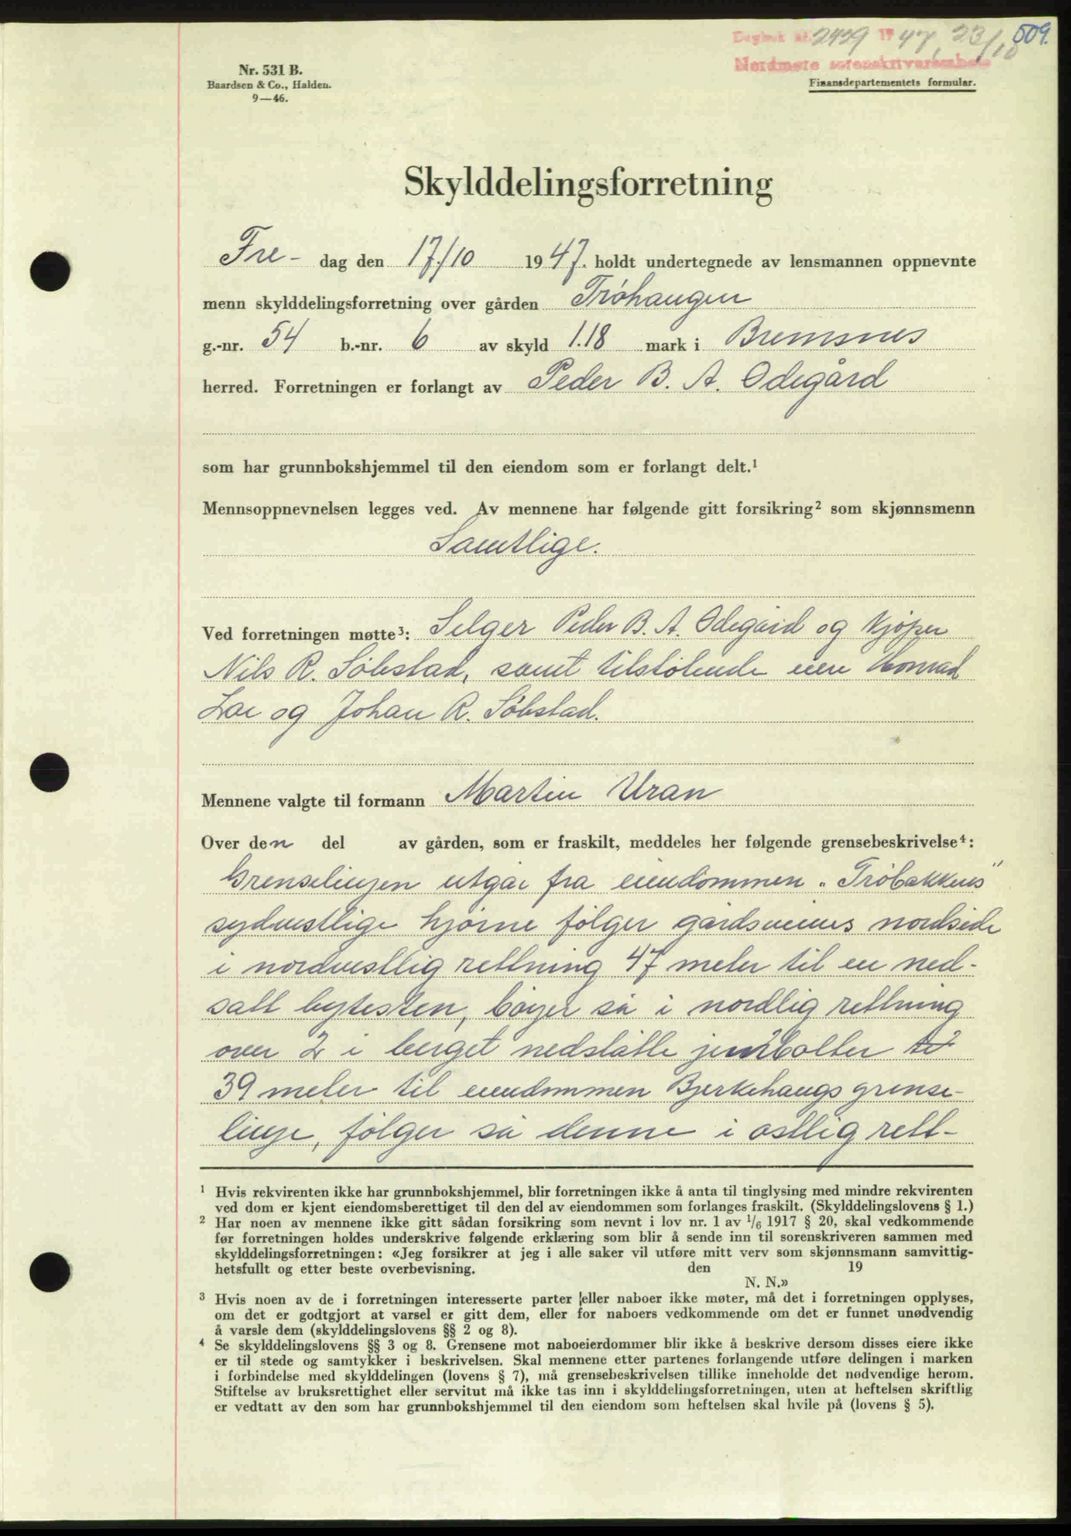 Dagbok nr. 2429 19 47, 23/10
509.
Nordmøre sorenskriverembete
Nr. 531 B.
Baardsen & Co., Halden.
9—46.
Finansdepartementets formular.
Skylddelingsforretning
Fre- dag den 17/10 1947. holdt undertegnede av lensmannen oppnevnte
menn skylddelingsforretning over gården Trøhaugen
g.-nr. 54 b.-nr. 6 av skyld 1.18 mark i Bremsnes
herred. Forretningen er forlangt av Peder B. A. Ødegård
som har grunnbokshjemmel til den eiendom som er forlangt delt.¹
Mennsoppnevnelsen legges ved. Av mennene har følgende gitt forsikring² som skjønnsmenn
Samtlige.
Ved forretningen møtte³: Selger Peder B. A. Ødegård og kjøper
Nils R. Søbstad, samt tilstøtende eiere Konrad
Loe og Johan R. Søbstad.
Mennene valgte til formann Martin Uran
Over den del av gården, som er fraskilt, meddeles her følgende grensebeskrivelse⁴:
Grenselinjen utgår fra eiendommen „Trøbakkens"
sydvestlige hjørne følger gårdsveiens nordside
i nordvestlig rettning 47 meter til en ned-
satt bytesten, bøyer så i nordlig rettning
over 2 i berget nedslåtte jernbolter
39 meter til eiendommen Bjerkehaugs grense-
linje, følger så denne i østlig rett-
¹ Hvis rekvirenten ikke har grunnbokshjemmel, blir forretningen ikke å anta til tinglysing med mindre rekvirenten
ved dom er kjent eiendomsberettiget til den del av eiendommen som forlanges fraskilt. (Skylddelingslovens § 1.)
² Har noen av mennene ikke gitt sådan forsikring som nevnt i lov nr. 1 av 1/6 1917 § 20, skal vedkommende
før forretningen holdes underskrive følgende erklæring som blir å sende inn til sorenskriveren sammen med
skylddelingsforretningen: «Jeg forsikrer at jeg i alle saker vil utføre mitt verv som skjønnsmann samvittig-
hetsfullt og etter beste overbevisning. den 19
N. N.»
³ Hvis noen av de i forretningen interesserte parter eller naboer ikke møter, må det i forretningen opplyses,
om det er godtgjort at varsel er gitt dem, eller for naboers vedkommende om det er funnet unødvendig
å varsle dem (skylddelingslovens §§ 2 og 8).
⁴ Se skylddelingslovens §§ 3 og 8. Grensene mot naboeierdommer blir ikke å beskrive dersom disses eiere ikke
er til stede og samtykker i beskrivelsen. Skal mennene etter partenes forlangende utføre delingen i marken
i forbindelse med skylddelingen (lovens § 7), må grensebeskrivelsen tillike inneholde det nødvendige herom.
Stiftelse av bruksrettighet eller servitut må ikke tas inn i skylddelingsforretningen, uten at heftelsen skriftlig
er vedtatt av den som har grunnbokshjemmel til den eiendom som heftelsen skal hvile på (lovens § 5).